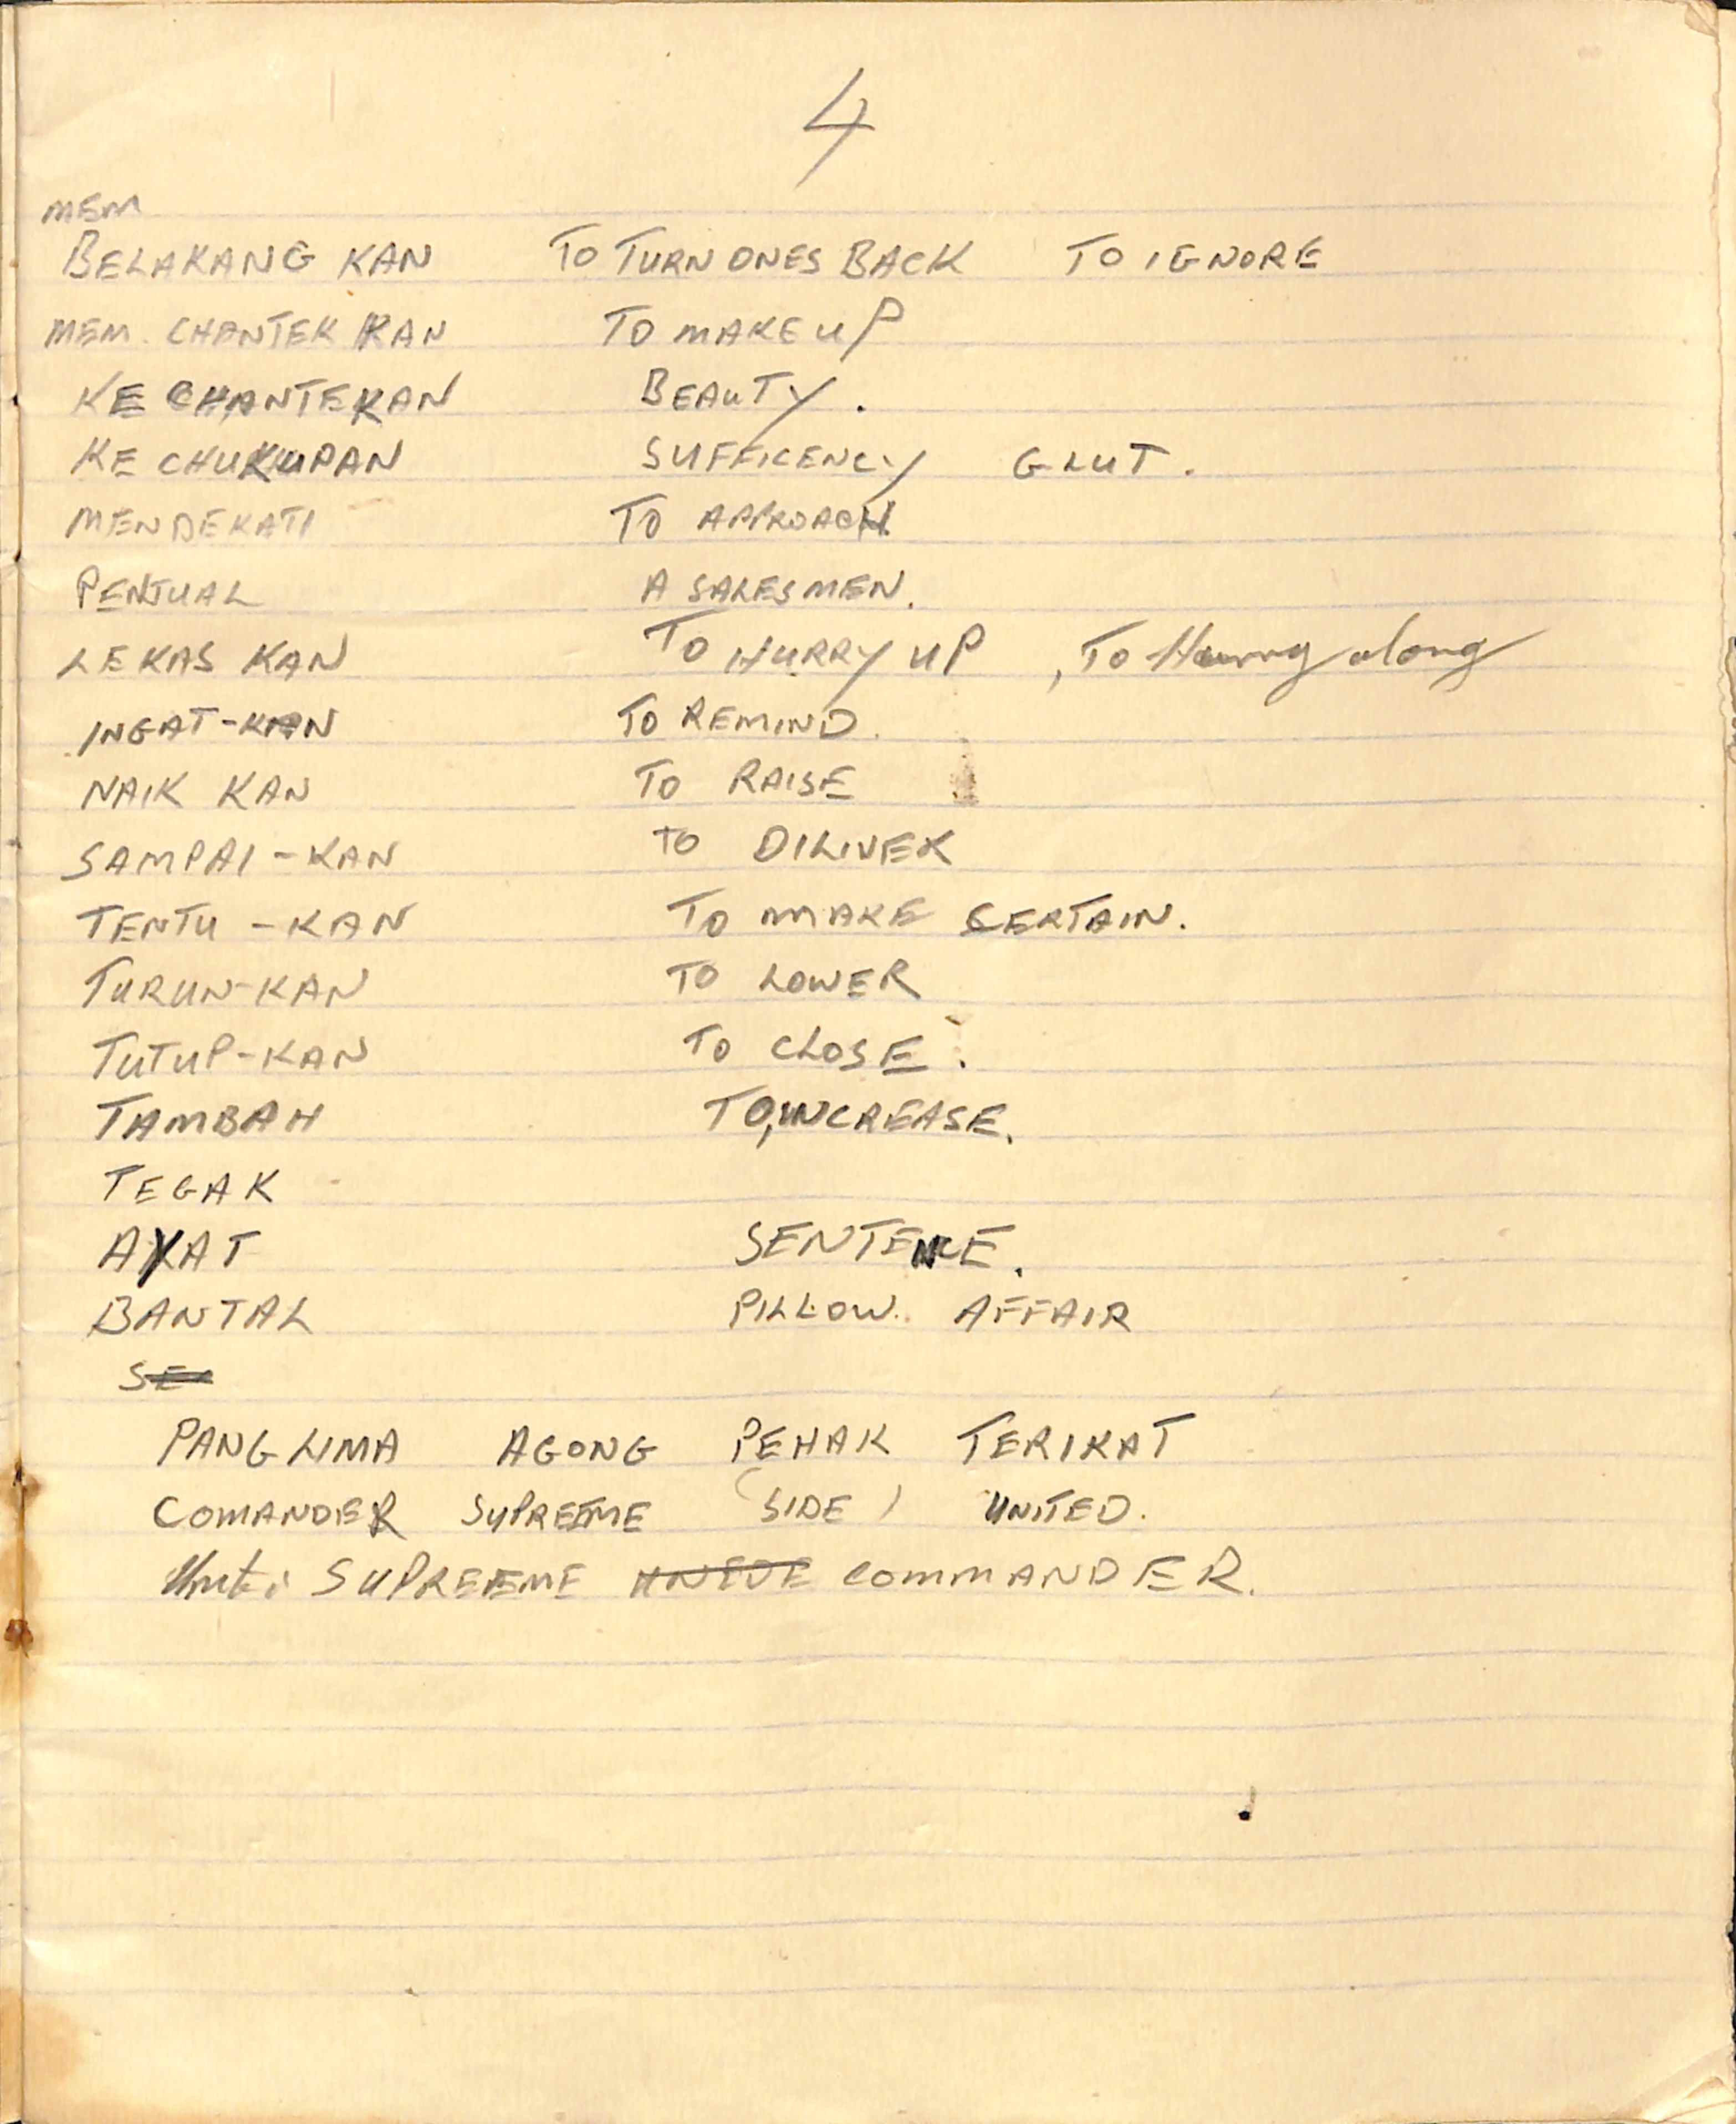 4
MEM
BELAKANG KAN TO TURN ONES BACK TO IGNORE
MEM. CHANTEK KAN TO MAKE UP
KE CHANTEKAN BEAUTY.
KE CHUKUPAN SUFFICENCY GLUT.
MENDEKATI TO APPROACH
PENJUAL A SALESMEN.
LEKAS KAN TO HURRY UP, To Hurry along
INGAT-KAN TO REMIND.
NAIK KAN TO RAISE
SAMPAI-KAN TO DILIVER
TENTU-KAN TO MAKE CERTAIN.
TURUN-KAN TO LOWER
TUTUP-KAN TO CLOSE.
TAMBAH TO, INCREASE.
TEGAK
AYAT SENTENCE.
BANTAL PILLOW. AFFAIR
SE
PANGLIMA AGONG PEHAK TERIKAT
COMANDER SUPREEME (SIDE) UNITED.
SUPREEME COMMANDER.